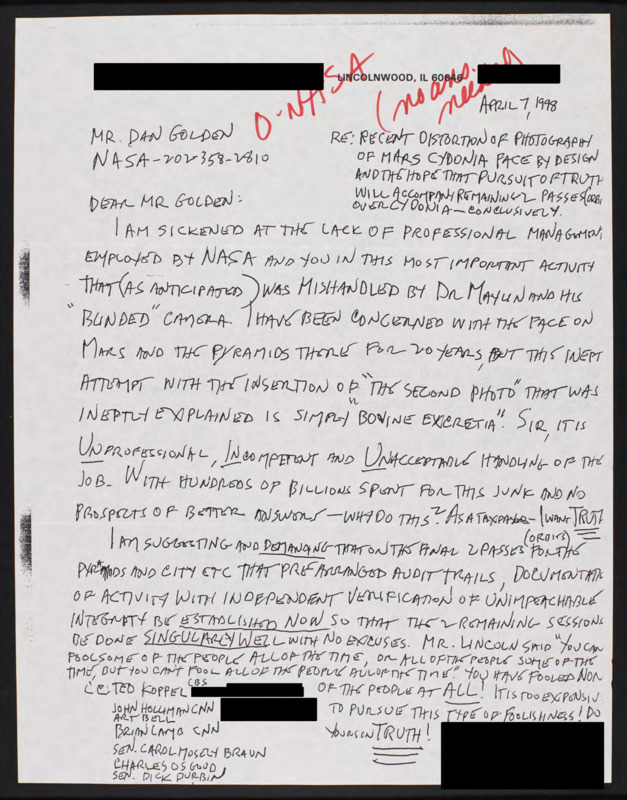 LINCOLNWOOD, IL 60646
O-NASA
(no ans. needed)
APRIL 7, 1998
MR. DAN GOLDEN
NASA-202-358-2810
RE: RECENT DISTORTION OF PHOTOGRAPHY
OF MARS CYDONIA FACE BY DESIGN
AND THE HOPE THAT PURSUIT OF TRUTH
WILL ACCOMPANY REMAINING 2 PASSES (ORBI
OVER CYDONIA—CONCLUSIVELY.
DEAR MR GOLDEN:
I AM SICKENED AT THE LACK OF PROFESSIONAL MANAGEMEN
EMPLOYED BY NASA AND YOU IN THIS MOST IMPORTANT ACTIVITY
THAT (AS ANTICIPATED) WAS MISHANDLED BY DR MAYLIN AND HIS
"BLINDED" CAMERA. I HAVE BEEN CONCERNED WITH THE FACE ON
MARS AND THE PYRAMIDS THERE FOR 20 YEARS, BUT THIS INEPT
ATTEMPT WITH THE INSERTION OF "THE SECOND PHOTO" THAT WAS
INEPTLY EXPLAINED IS SIMPLY "BOVINE EXCRETIA". SIR, IT IS
UNPROFESSIONAL, INCOMPETENT AND UNACCEPTABLE HANDLING OF THE
JOB. WITH HUNDREDS OF BILLIONS SPENT FOR THIS JUNK AND NO
PROSPECTS OF BETTER ANSWERS—WHY DO THIS? AS A TAXPAYER—I WANT TRUTH
I AM SUGGESTING AND DEMANDING THAT ON THE FINAL 2 PASSES (ORBITS) FOR THE
PYRAMIDS AND CITY ETC THAT PREARRANGED AUDIT TRAILS, DOCUMENTATI
OF ACTIVITY WITH INDEPENDENT VERIFICATION OF UNIMPEACHABLE
INTEGRITY BE ESTABLISHED NOW SO THAT THE 2 REMAINING SESSIONS
BE DONE SINGULARLY WELL WITH NO EXCUSES. MR. LINCOLN SAID "YOU CAN
FOOL SOME OF THE PEOPLE ALL OF THE TIME, OR ALL OF THE PEOPLE SOME OF THE
TIME, BUT YOU CAN'T FOOL ALL OF THE PEOPLE ALL OF THE TIME." YOU HAVE FOOLED NON
OF THE PEOPLE AT ALL! IT IS TOO EXPENSIV
TO PURSUE THIS TYPE OF FOOLISHNESS! DO
YOURS IN TRUTH!
CC: TED KOPPEL CBS
JOHN HOLLIMAN CNN
ART BELL
BRIAN LAMB CNN
SEN. CAROL MOSELY BRAUN
CHARLES OSGOOD
SEN. DICK DURBIN